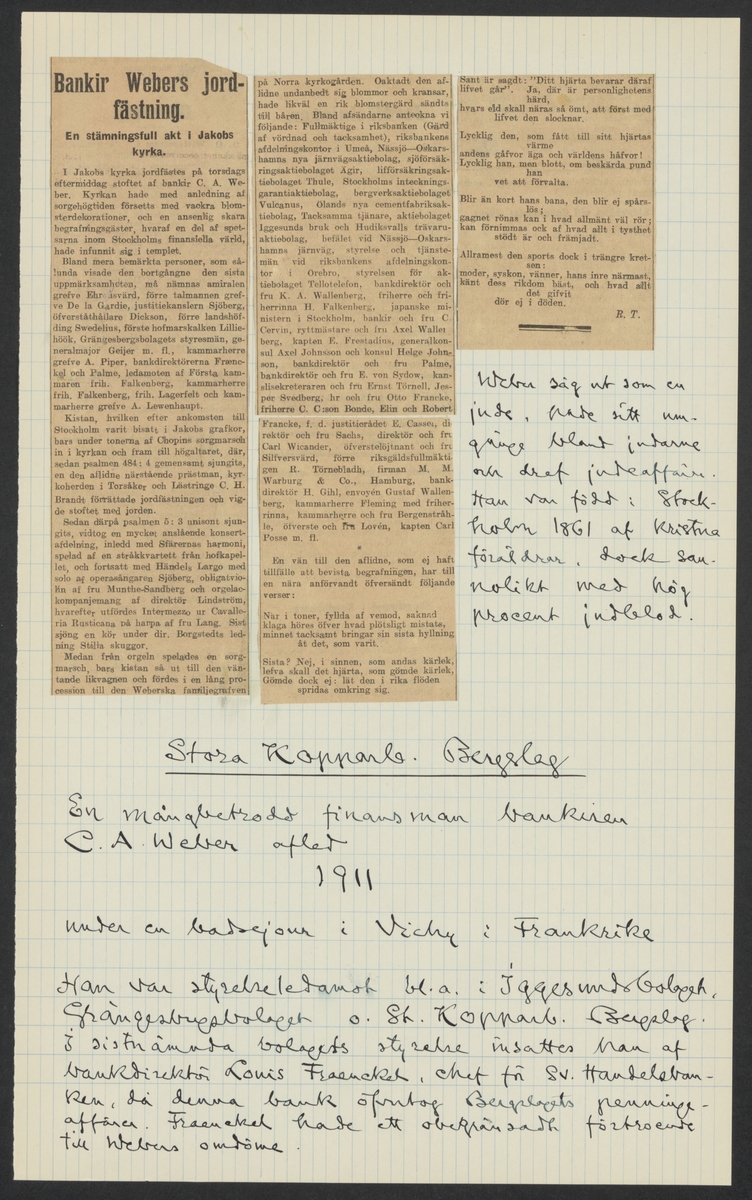 Bankir Webers jord-
fästning.
En stämningsfull akt i Jakobs
kyrka.
I Jakobs kyrka jordfästes på torsdags
eftermiddag stoftet af bankir C. A. We-
ber. Kyrkan hade med anledning af
sorgehögtiden försetts med vackra blom-
sterdekorationer, och en ansenlig skara
begrafningsgäster, hvaraf en del af spet-
sarna inom Stockholms finansiella värld,
hade infunnit sig i templet.
Bland mera bemärkta personer, som så-
lunda visade den bortgångne den sista
uppmärksamheten, må nämnas amiralen
grefve Ehrensvärd, förre talmannen gref-
ve De la Gardie, justitiekanslern Sjöberg,
öfverståthållare Dickson, förre landshöf-
ding Swedelius, förste hofmarskalken Lillie-
höök, Grängesbergsbolagets styresmän, ge-
neralmajor Geijer m. fl., kammarherre
grefve A. Piper, bankdirektörerna Fræne-
kel och Palme, ledamoten af Första kam-
maren frih. Falkenberg, kammarherre
frih. Falkenberg, frih. Lagerfelt och kam-
marherre grefve A. Lewenhaupt.
Kistan, hvilken efter ankomsten till
Stockholm varit bisatt i Jakobs grafkor,
bars under tonerna af Chopins sorgmarsch
in i kyrkan och fram till högaltaret, där,
sedan psalmen 484: 4 gemensamt sjungits,
en den aflidne närstående prästman, kyr-
koherden i Torsåker och Lästringe C. H.
Brandt förrättade jordfästningen och vig-
de stoftet med jorden.
Sedan därpå psalmen 5: 3 unisont sjun-
gits, vidtog en mycket anslående konsert-
afdelning, inledd med Sfärernas harmoni,
spelad af en stråkkvartett från hofkapel-
let, och fortsatt med Händels Largo med
solo af operasångaren Sjöberg, obligatvio-
lin af fru Munthe-Sandberg och orgelac-
kompanjemang af direktör Lindström,
hvarefter utfördes Intermezzo ur Cavalle-
ria Rusticana på harpa af fru Lang. Sist
sjöng en kör under dir. Borgstedts led-
ning Stilla skuggor.
Medan från orgeln spelades en sorg-
marsch, bars kistan så ut till den vän-
tande likvagnen och fördes i en lång pro-
cession till den Weberska familjegrafven
på Norra kyrkogården. Oaktadt den af-
lidne undanbedt sig blommor och kransar,
hade likväl en rik blomstergärd sändts
till båren. Bland afsändarne anteckna vi
följande: Fullmäktige i riksbanken (Gärd
af vördnad och tacksamhet), riksbankens
afdelningskontor i Umeå, Nässjö—Oskars-
hamns nya järnvägsaktiebolag, sjöförsäk-
ringsaktiebolaget Ägir, lifförsäkringsak-
tiebolaget Thule, Stockholms intecknings-
garantiaktiebolag, bergverksaktiebolaget
Vulcanus, Ölands nya cementfabriksak-
tiebolag, Tacksamma tjänare, aktiebolaget
Iggesunds bruk och Hudiksvalls trävaru-
aktiebolag, befälet vid Nässjö—Oskars-
hamns järnväg, styrelse och tjänste-
män vid riksbankens afdelningskon-
tor i Örebro, styrelsen för ak-
tiebolaget Tellotelefon, bankdirektör och
fru K. A. Wallenberg, friherre och fri-
herrinna H. Falkenberg, japanske mi-
nistern i Stockholm, bankir och fru C.
Cervin, ryttmästare och fru Axel Wallen-
berg, kapten E. Frestadius, generalkon-
sul Axel Johnson och konsul Helge John-
son, bankdirektör och fru Palme,
bankdirektör och fru E. von Sydow, kan-
slisekreteraren och fru Ernst Törnell, Jes-
per Svedberg, hr och fru Otto Francke,
friherre C. C:son Bonde, Elin och Robert
Francke, f. d. justitierådet E. Cassel, di-
rektör och fru Sachs, direktör och fru
Carl Wicander, öfverstelöjtnant och fru
Silfversvärd, förre riksgäldsfullmäkti-
gen R. Törnebladh, firman M. M.
Warburg & Co., Hamburg, bank-
direktör H. Gihl, envoyén Gustaf Wallen-
berg, kammarherre Fleming med friher-
rinna, kammarherre och fru Bergenstråh-
le, öfverste och fru Lovén, kapten Carl
Posse m. fl.
En vän till den aflidne, som ej haft
tillfälle att bevista begrafningen, har till
en nära anförvandt öfversändt följande
verser:
När i toner, fyllda af vemod, saknad
klaga höres öfver hvad plötsligt mistats,
minnet tacksamt bringar sin sista hyllning
åt det, som varit.
Sista? Nej, i sinnen, som andas kärlek,
lefva skall det hjärta, som gömde kärlek,
Gömde dock ej; lät den i rika flöden
spridas omkring sig.
Sant är sagdt: "Ditt hjärta bevarar däraf
lifvet går". Ja, där är personlighetens
härd,
hvars eld skall näras så ömt, att först med
lifvet den slocknar.
Lycklig den, som fått till sitt hjärtas
värme
andens gåfvor äga och världens håfvor!
Lycklig han, men blott, om beskärda pund
han
vet att förvalta.
Blir än kort hans bana, den blir ej spårs-
lös;
gagnet rönas kan i hvad allmänt väl rör;
kan förnimmas ock af hvad allt i tysthet
stödt är och främjadt.
Allramest den sports dock i trängre kret-
sen:
moder, syskon, vänner, hans inre närmast,
känt dess rikdom bäst, och hvad allt
det gifvit
dör ej i döden.
R. T.
Weber såg ut som en
jude, hade sitt um-
gänge bland judarne
och dref judeaffärer.
Han var född i Stock-
holm 1861 af kristna
föräldrar, dock san-
nolikt med hög
procent judblod.
Stora Kopparb. Bergslag
En mångbetrodd finansman bankiren
C. A. Weber afled
1911
under en badsejour i Vichy i Frankrike
Han var styrelseledamot bl. a. i Iggesundsbolaget,
Grängesbergsbolaget o. St. Kopparb. Bergslag.
I sistnämnda bolagets styrelse insattes han af
bankdirektör Louis Fraenckel, chef för Sv. Handelsban-
ken, då denna bank öfvertog Bergslagets penninge-
affärer. Fraenckel hade ett obegränsadt förtroende
till Webers omdöme.